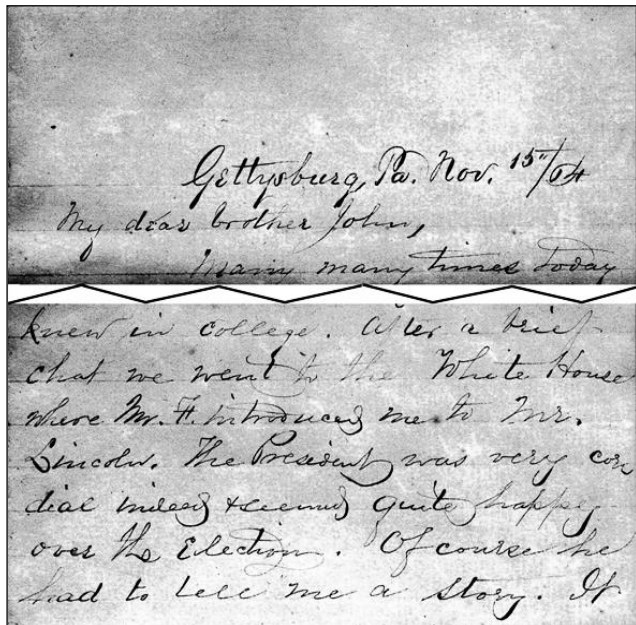 Gettysburg, Pa. Nov. 15"/64
My dear brother John,
Many many times today
knew in college. After a brief
chat we went to the White House
where Mr. F. introduced me to Mr.
Lincoln. The President was very cor
dial indeed & seemed quite happy
over the Election. Of course he
had to tell me a story. It